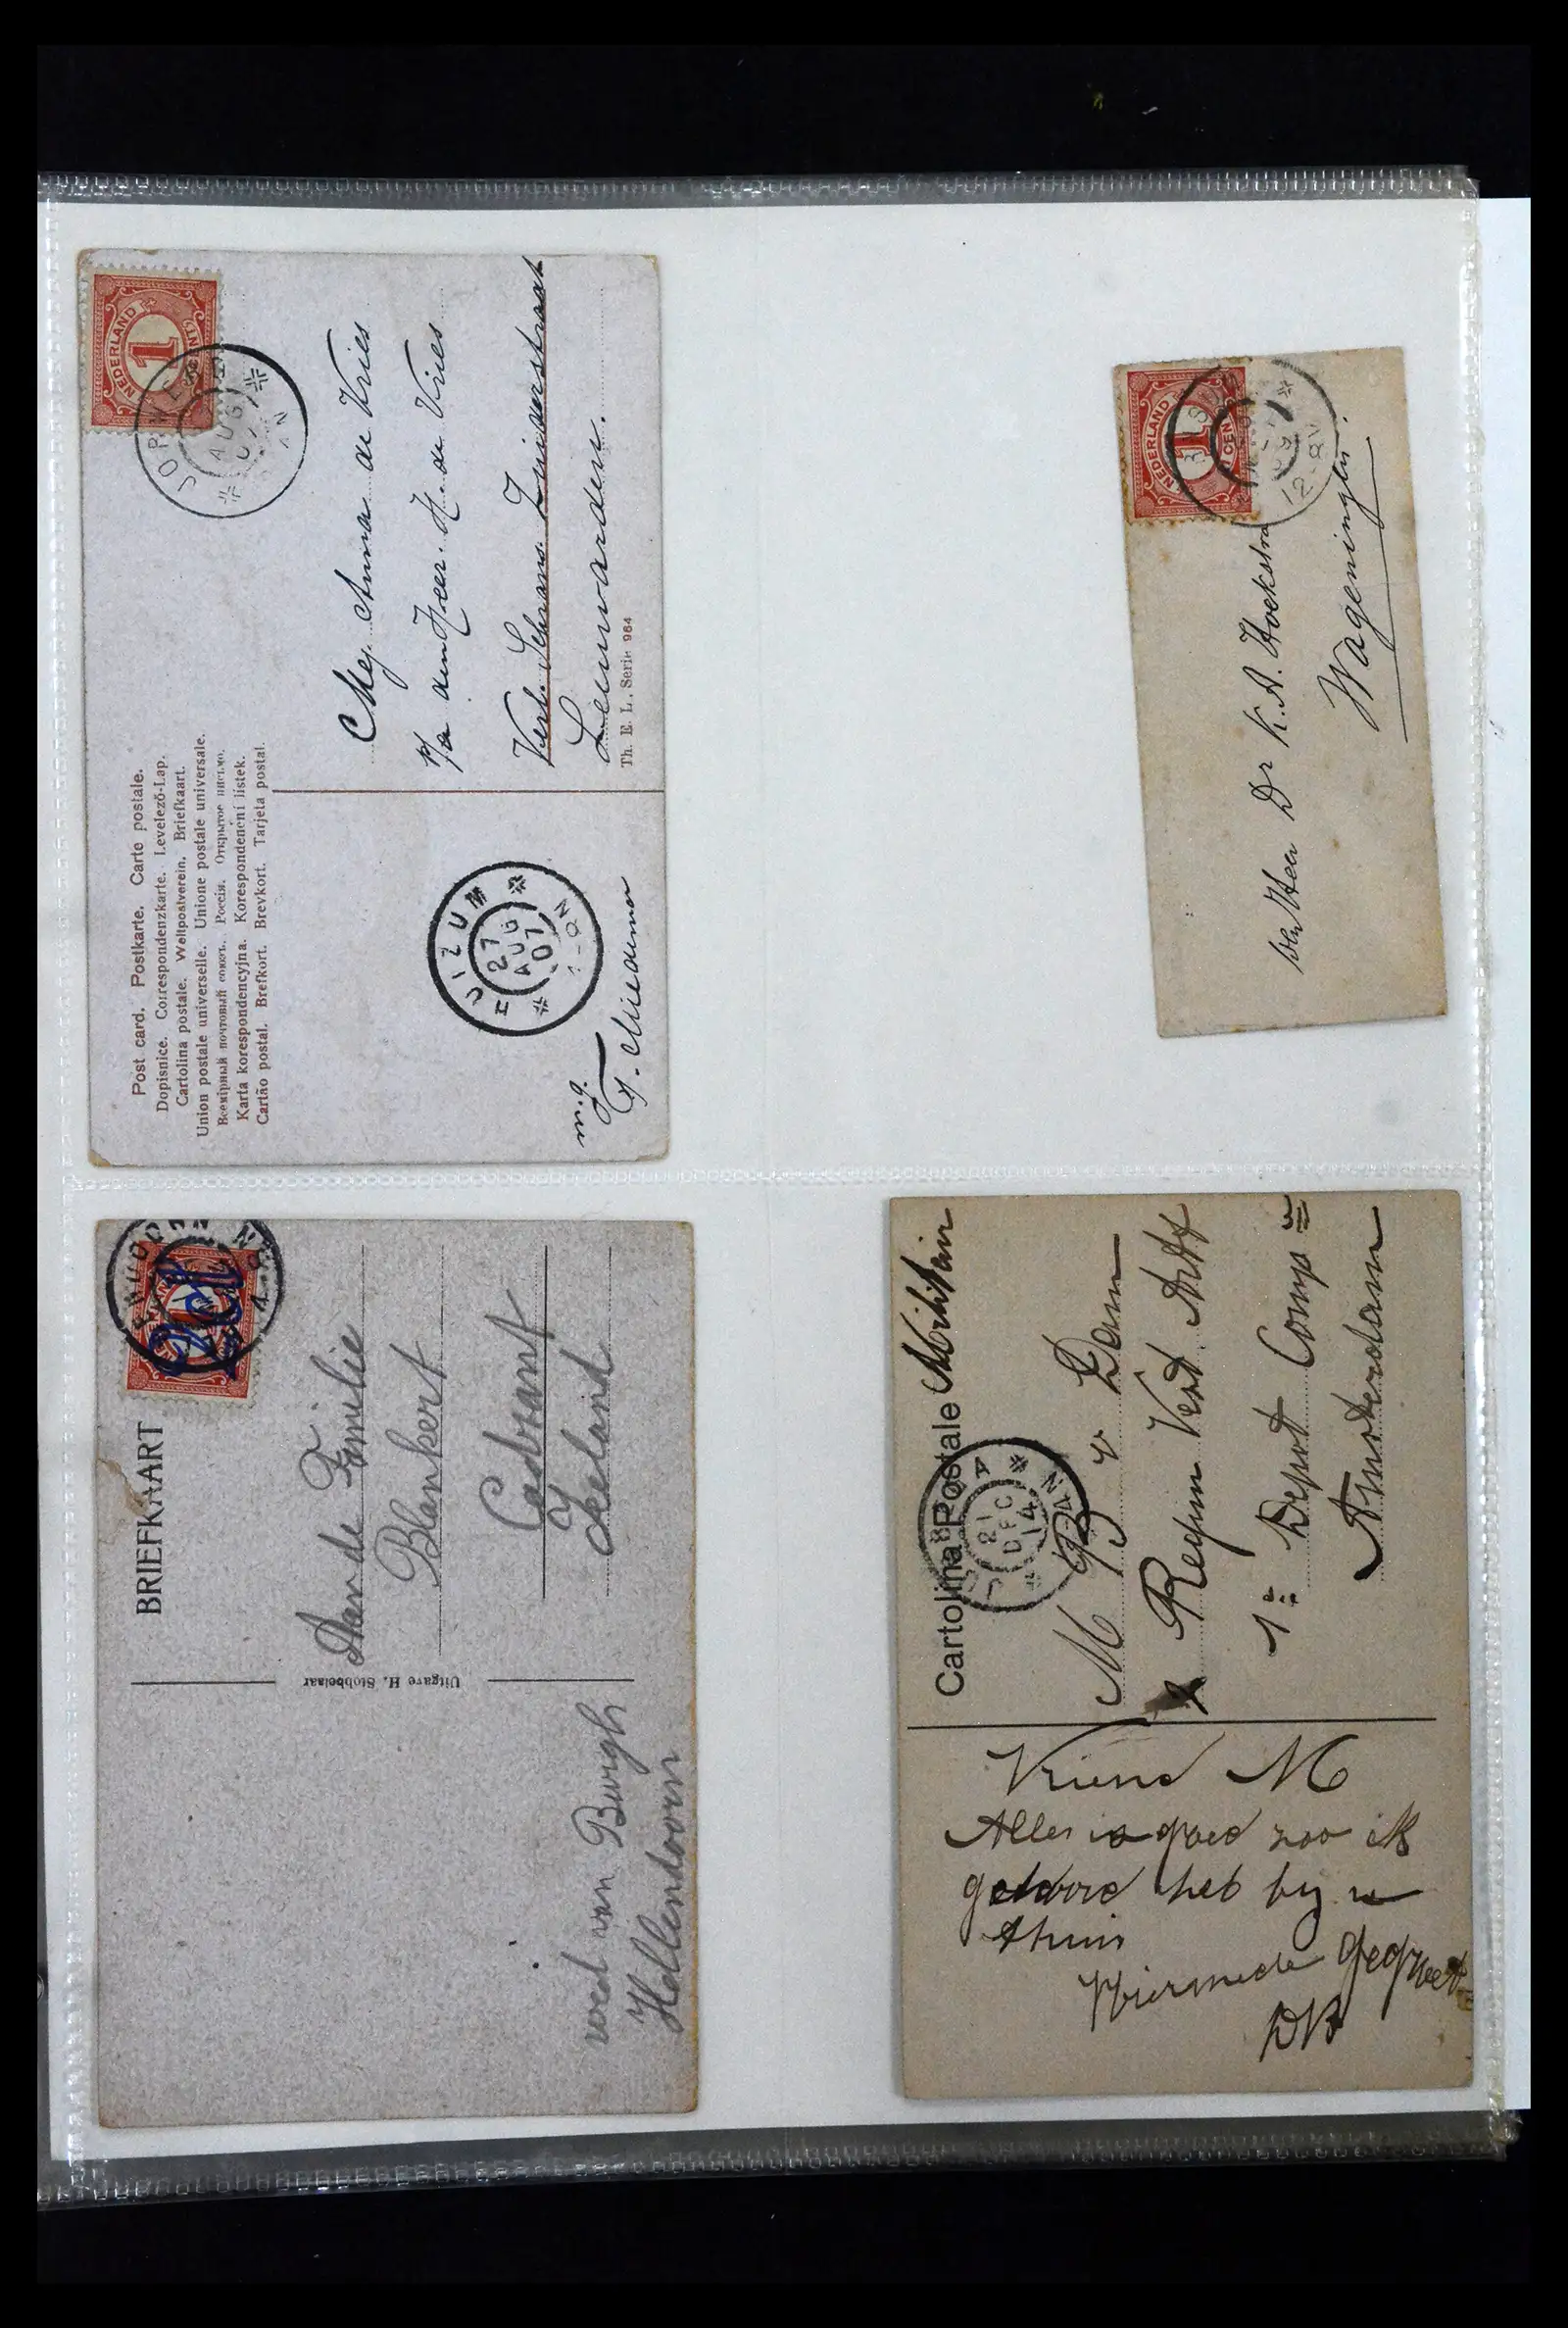 Post card. Postkarte. Carte postale.
Dopisnice. Correspondenzkarte. Levelező-Lap.
Cartolina postale. Weltpostverein. Briefkaart.
Union postale universelle. Unione postale universale.
Всемірный почтовый союзъ. Россія. Открытое письмо.
Karta korespondencyjna. Korespondenční listek.
Cartão postal. Brefkort. Brevkort. Tarjeta postal.
NEDERLAND
1
CENT
AUG
07
Mej. Anna de Vries
p/a den Heer. H. de Vries
Verl. Schrans. Zuiderstraat
Leeuwarden.
Th. E. L. Serie 964
HUIZUM
27
AUG
07
m.g.
T. Miedema
NEDERLAND
1
1 CENT
12
Dr K. A. Hoekstra
Wageningen.
BRIEFKAART
Aan de Familie
Blankert
Cadzant
Zeeland
Uitgave H. Stobbelaar
van Burgh
Hellendoorn
Cartolina Postale Militair
21
DEC
14
M B v Dam
Regim Vest Art
1e Depot Comp ie
Amsterdam
Vriend M
Alles is goed zoo ik
gehoord heb by u
thuis
Hiermede gegroet
DB